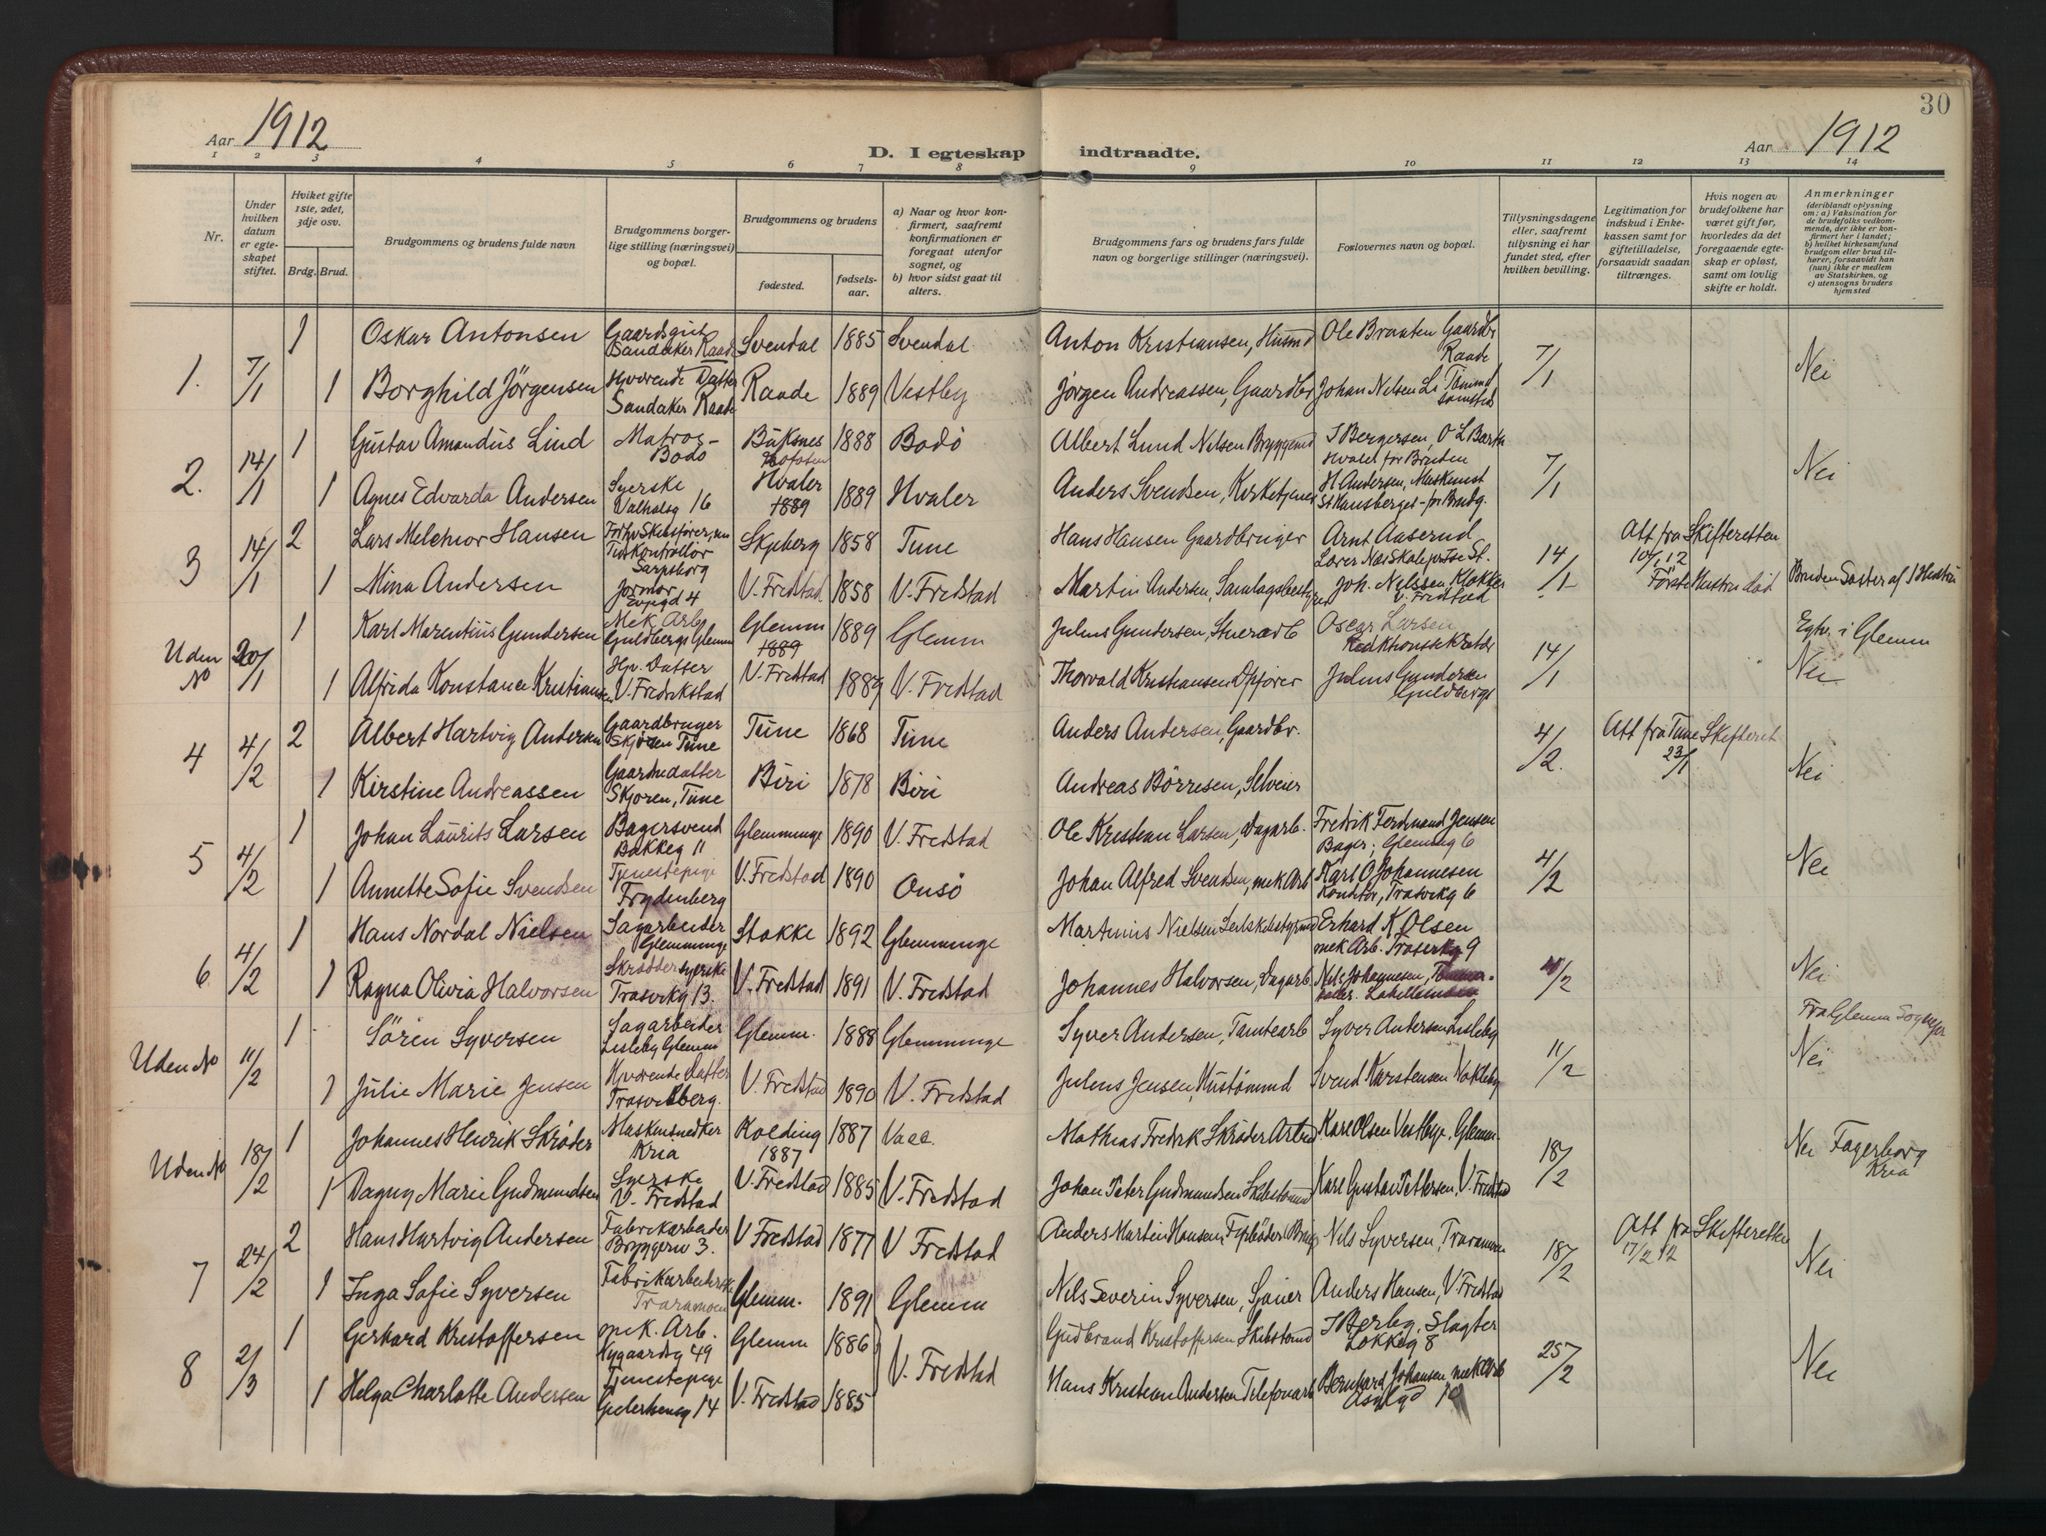 30
Aar 1912
D. I egteskap indtraadte.
Aar 1912
1 2 3 4 5 6 7 8 9 10 11 12 13 14
Nr.
Under hvilken datum er egteskapet stiftet.
Hviket gifte 1ste, 2det, 3dje osv.
Brdg. Brud.
Brudgommens og brudens fulde navn
Brudgommens borgerlige stilling (næringsvei) og bopæl.
Brudgommens og brudens
fødested. fødselsaar.
a) Naar og hvor konfirmert, saafremt konfirmationen er foregaat utenfor sognet, og
b) hvor sidst gaat til alters.
Brudgommens fars og brudens fars fulde navn og borgerlige stillinger (næringsvei).
Foslovernes navn og bopæl.
Tillysningsdagene eller, saafremt tillysning ei har fundet sted, efter hvilken bevilling.
Legitimation for indskud i Enkekassen samt for giftetilladelse, forsaavidt saadan tiltrænges.
Hvis nogen av brudefolkene har været gift før, hvorledes da det foregaaende egteskap er opløst, samt om lovlig skifte er holdt.
Anmerkninger (deriblandt oplysning om: a) Vaksination for de brudefolks vedkommende, der ikke er konfirmert her i landet; b) hvilket kirkesamfund brudgom eller brud tilhører, forsaavidt han (hun) ikke er medlem av Statskirken, og c) utensogns bruders hjemsted
1. 7/1 1 Oskar Antonsen Gaardsgut Sandaker Raade Svendal 1885 Svendal Anton Kristiansen, Husmd Ole Braaten Gaardbr Raade 7/1 Nei
1 Borghild Jørgensen Hværende Datter Sandaker Raade Raade 1889 Vestby Jørgen Andreassen, Gaardbr Johan Nilsen
2. 14/1 1 Gustav Amandus Lind Matros Bodø Buksnes Lofoten 1888 Bodø Albert Lund Nilsen Bryggemd J Bergersen, Hvaler for Bruden 7/1 Nei
1 Agnes Edvarda Andersen Syerske Valhalsg 16 Hvaler 1889 1889 Hvaler Anders Svendsen, Kirketjener H Andersen, St Hansberget - for Brudg.
3 14/1 2 Lars Melchior Hansen Sarpsborg Skjeberg 1858 Tune Hans Hansen Gaardbruger Arnt Aaserud 14/1 Att fra Skifteretten 10/1 12
1 Mina Andersen Jormor V. Fredstad 1858 V. Fredstad Martin Andersen, Samlagsbestyrer Joh. Nilssen Klokker V. Fredstad Første Hustru død Bruden Søster af 1 Hustru
Uden No 20/1 1 Karl Marentius Gundersen Mek Arb Guldbergs Glemm Glemm 1889 1889 Glemm Julius Gundersen, Stuerarb Oscar Larsen 14/1 Egtv. i Glemm
1 Alfrida Konstance Kristiansen Hv. Datter V. Fredrikstad V. Fredstad 1889 V. Fredstad Thorvald Kristiansen Opfører Julius Gundersen Guldbergs Nei
4 4/2 2 Albert Hartvig Andersen Gaardbruger Skjøren Tune Tune 1868 Tune Anders Andersen, Gaardbr. 4/2. Att fra Tune Skifteret 23/1
1 Kirstine Andreassen Gaardmdatter Skjøren, Tune Biri 1878 Biri Andreas Børresen, Selveier Nei
5 4/2 1 Johan Laurits Larsen Bagersvend Bakkeg 11 Glemminge 1890 V. Fredstad Ole Kristian Larsen, Dagarb. Fredrik Ferdinand Jensen Bager; Glemmg 6 4/2 Nei
1 Annette Sofie Svendsen Tjenestepige Frydenberg V. Fredstad 1890 Onsø Johan Alfred Svendsen, mek Arb Karl O Johannesen Konditor, Trosvikg 6
6 4/2 1 Hans Nordal Nielsen Sagarbeider Glemminge Stokke 1892 Glemminge Martinius Nielsen Seilskibstyrmd Erhard K Olsen mek Arb. Trosvikg 9 4/2 Nei
1 Ragna Olivia Halvorsen Skræddersyerske Trosvikg 13. V. Fredstad 1891 V. Fredstad Johannes Halvorsen, Dagarb. Nils Johannesen,
Uden No 11/2 1 Sören Syversen Sagarbeider Lisleby Glemm Glemm. 1888 Glemminge Syver Andersen, Tomtearb Syver Andersen Lisleby 11/2 Fra Glemm Sogn
1 Julie Marie Jensen Hværende Datter Trosvikberg. V. Fredstad 1890 V. Fredstad Julius Jensen, Hustømmd Svend Karstensen Nokleby Nei
Uden No 18/2 1 Johannes Henrik Skrøder Maskinsnedker Kria Kolding 1887 1887 Mathias Fredrik Skrøder Arbmd Karl Olsen Vestbye, Glemm. 18/2 Nei Fagerborg Kria
1 Dagny Marie Gudmundsen Syerske V. Fredstad V. Fredstad 1885 V. Fredstad Johan Peter Gudmundsen Skibstømmd Karl Gustav Pettersen, V. Fredstad
7 24/2 2 Hans Hartvig Andersen Fabrikarbeider Bryggeriv 3. V Fredstad 1877 V Fredstad Anders Martin Hansen, Nils Syversen, Traramoen 18/2 Att fra Skifteretten 17/2 12 Nei
1 Inga Sofie Syversen Fabrikarbeiderske Traramoen Glemm. 1891 Glemm Nils Severin Syversen, Sjauer Anders Hansen, V Fredstad
8 2/3 1 Gerhard Kristoffersen mek. Arb. Nygaardsg 49 Glemm 1886 V. Fredstad Gudbrand Kristoffersen Skibstømd J Berby, Slagter Løkkeg 8 25/2 Nei
1 Helga Charlotte Andersen Tjenestepige Geterhensg 14 V. Fredstad 1885 Hans Kristian Andersen Telefonarb Bernhard Johansen mek Arb